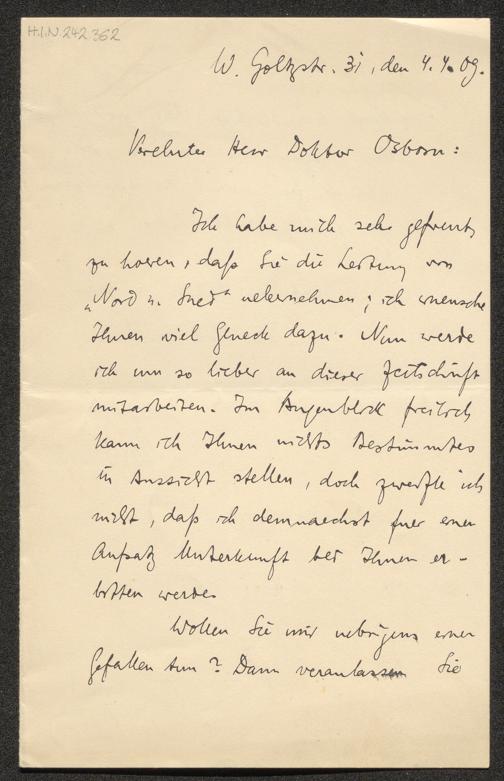 H.I.N. 242 362
W. Goltzstr. 31, den 4. 4. 09.
Verehrter Herr Doktor Osborn:
Ich habe mich sehr gefreut,
zu hoeren, daß Sie die Leitung von
„Nord u. Sued“ uebernehmen; ich wuensche
Ihnen viel Glueck dazu. Nun werde
ich um so lieber an dieser Zeitschrift
mitarbeiten. Im Augenblick freilich
kann ich Ihnen nichts Bestimmtes
in Aussicht stellen, doch zweifle ich
nicht, daß ich demnaechst fuer einen
Aufsatz Unterkunft bei Ihnen er-
bitten werde.
Wollen Sie mir uebrigens einen
Gefallen tun? Dann veranlassen Sie